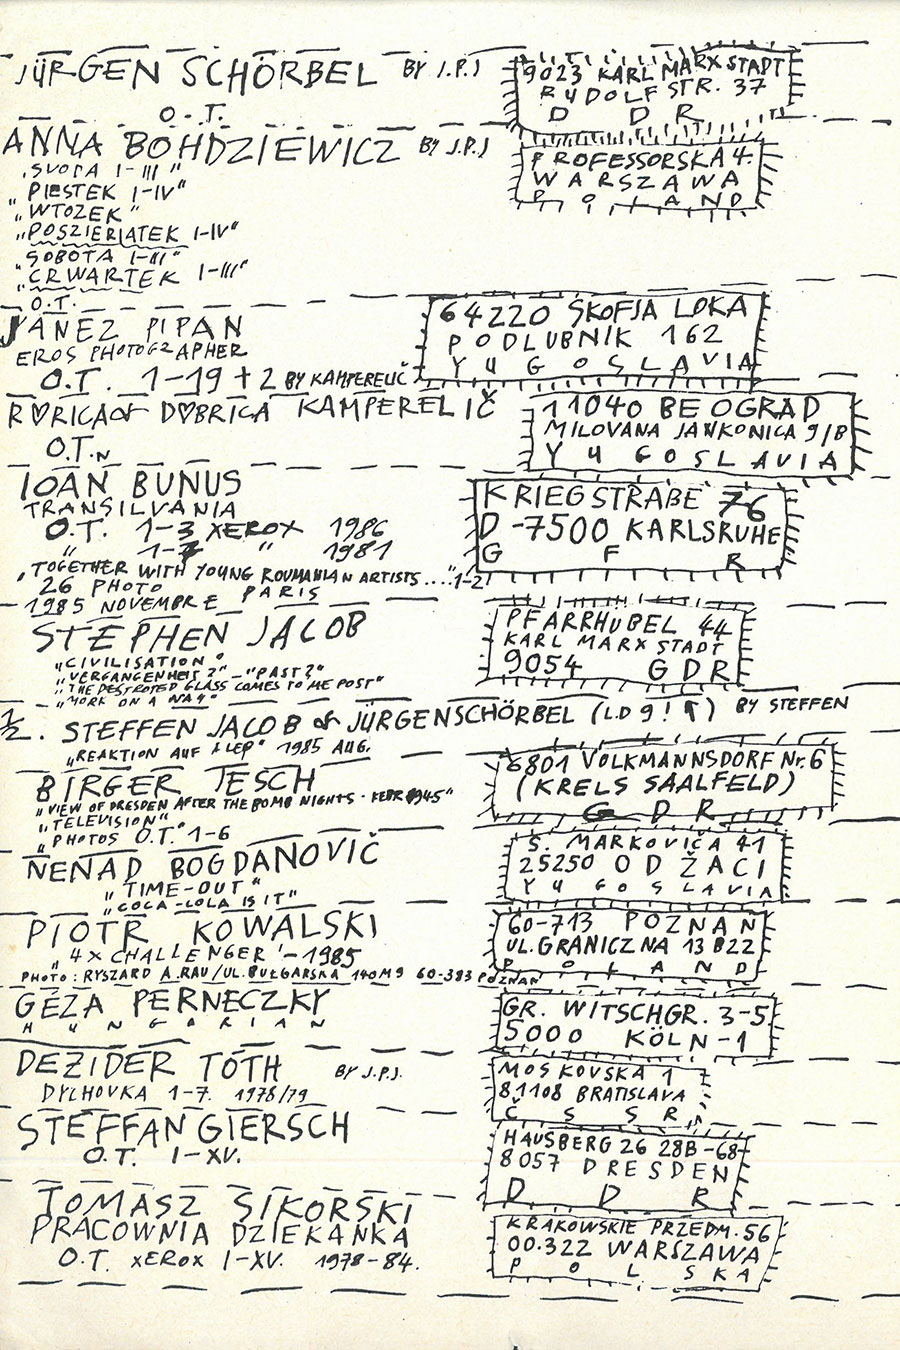 JÜRGEN SCHÖRBEL BY J.P.J
O.T.
9023 KARL MARX STADT
RUDOLFSTR. 37
D D R
ANNA BOHDZIEWICZ BY J.P.J
„SVODA I-III"
„PIESTEK I-IV"
„WTOZEK"
„POSZIERIATEK I-IV"
„SOBOTA I-III"
„CRWARTEK I-III"
O.T.
PROFESSORSKA 4.
WARSZAWA
POLAND
JANEZ PIPAN
EROS PHOTOGRAPHER
O.T. 1-19 + 2 BY KAMPERELIČ
64220 ŠKOFJA LOKA
PODLUBNIK 162
YUGOSLAVIA
R♥RICA & D♥BRICA KAMPERELIČ
O.T.N
11040 BEOGRAD
MILOVANA JANKOVICA 9/B
YUGOSLAVIA
IOAN BUNUS
TRANSILVANIA
O.T. 1-3 XEROX 1986
" 1-7 " 1981
„TOGETHER WITH YOUNG ROUMANIAN ARTISTS...."1-2
26 PHOTO PARIS
1985 NOVEMBRE
KRIEGSTRAßE 76
D-7500 KARLSRUHE
G F R
STEPHEN JACOB
„CIVILISATION"
„VERGANGENHEIT?" - "PAST?"
„THE DESTROYED GLASS COMES TO ME POST"
„WORK ON A WAY"
PFARRHÜBEL 44
KARL MARX STADT
9054 GDR
1/2. STEFFEN JACOB & JÜRGENSCHÖRBEL (L.D 9!¶) BY STEFFEN
„REAKTION AUF LLEP" 1985 AUG.
BIRGER JESCH
„VIEW OF DRESDEN AFTER THE BOMB NIGHTS - FEBR 1945"
„TELEVISION"
„PHOTOS O.T." 1-6
6801 VOLKMANNSDORF Nr. 6
(KREIS SAALFELD)
G D R
NENAD BOGDANOVIČ
„TIME-OUT"
„COCA-COLA IS IT"
S. MARKOVIČA 41
25250 ODŽACI
YUGOSLAVIA
PIOTR KOWALSKI
„4X CHALLENGER' - 1985
PHOTO: RYSZARD A.RAU/UL.BUŁGARSKA 140M9 60-383 POZNAN
60-713 POZNAN
UL. GRANICZNA 13 B22
POLAND
GÉZA PERNECZKY
HUNGARIAN
GR. WITSCHGR. 3-5
5000 KÖLN-1
DEZIDER TÓTH BY J.P.J.
DYCHOVKA 1-7. 1978/79
MOSKOVSKA 1
81108 BRATISLAVA
Č S S R
STEFFAN GIERSCH
O.T. I-XV.
HAUSBERG 26 28B-68-
8057 DRESDEN
D D R
TOMASZ SIKORSKI
PRACOWNIA DZIEKANKA
O.T. XEROX I-XV. 1978-84.
KRAKOWSKIE PRZEDM. 56
00.322 WARSZAWA
POLSKA